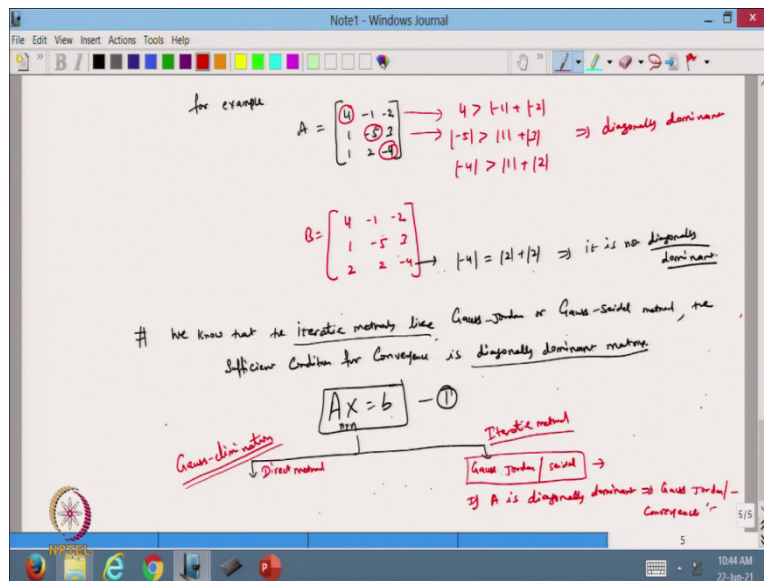 Note1 - Windows Journal
File Edit View Insert Actions Tools Help
for example
A = [4 -1 -2 → 4 > |-1| + |-2|
1 -5 3 → |-5| > |1| + |3| ⇒ diagonally dominant
1 2 -4] |-4| > |1| + |2|
B = [4 -1 -2
1 -5 3
2 2 -4] → |-4| = |2| + |2| ⇒ it is not diagonally
dominant.
# We know that the iterative methods like Gauss-Jordan or Gauss-Seidel method, the
sufficient condition for convergence is diagonally dominant matrix.
Ax = b — ①
n×n
Gauss-elimination Iterative method
Direct method Gauss Jordan / Seidel →
If A is diagonally dominant ⇒ Gauss Jordan/-
Convergence
NPTEL
5/5
5
10:44 AM
22-Jun-21